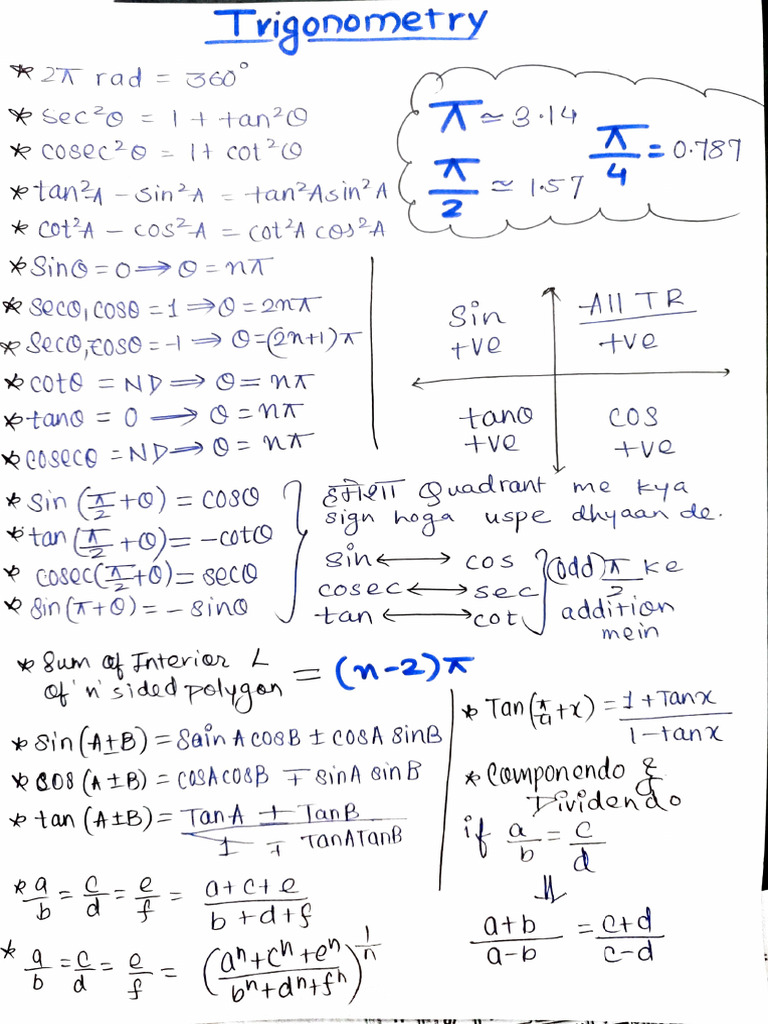 Trigonometry
* 2π rad = 360°
* sec²θ = 1 + tan²θ
* cosec²θ = 1 + cot²θ
* tan²A - sin²A = tan²A sin²A
* cot²A - cos²A = cot²A cos²A
π ≃ 3.14
π/2 ≃ 1.57
π/4 = 0.787
* Sinθ = 0 ⟹ θ = nπ
* secθ, cosθ = 1 ⟹ θ = 2nπ
* Secθ, cosθ = -1 ⟹ θ = (2n+1)π
* cotθ = ND ⟹ θ = nπ
* tanθ = 0 ⟶ θ = nπ
* cosecθ = ND ⟶ θ = nπ
Sin
+ve
All TR
+ve
tanθ
+ve
cos
+ve
* Sin (π/2 + θ) = cosθ
* tan (π/2 + θ) = -cotθ
* cosec (π/2 + θ) = secθ
* Sin (π + θ) = - sinθ
हमेशा Quadrant me kya
sign hoga uspe dhyaan de.
sin ⟷ cos
cosec ⟷ sec
tan ⟷ cot
(odd) π/2 ke
addition
mein
* Sum of Interior ∠
of 'n' sided polygon = (n-2)π
* Sin (A±B) = Sain A cosB ± cosA sinB
* cos (A±B) = cosA cosB ∓ sinA sinB
* tan (A±B) = TanA ± TanB / 1 ∓ TanATanB
* a/b = c/d = e/f = a+c+e / b+d+f
* a/b = c/d = e/f = (aⁿ+cⁿ+eⁿ / bⁿ+dⁿ+fⁿ)^1/n
* Tan (π/4 + x) = 1 + Tanx / 1 - tanx
* Componendo &
Dividendo
if a/b = c/d
⇓
a+b / a-b = c+d / c-d